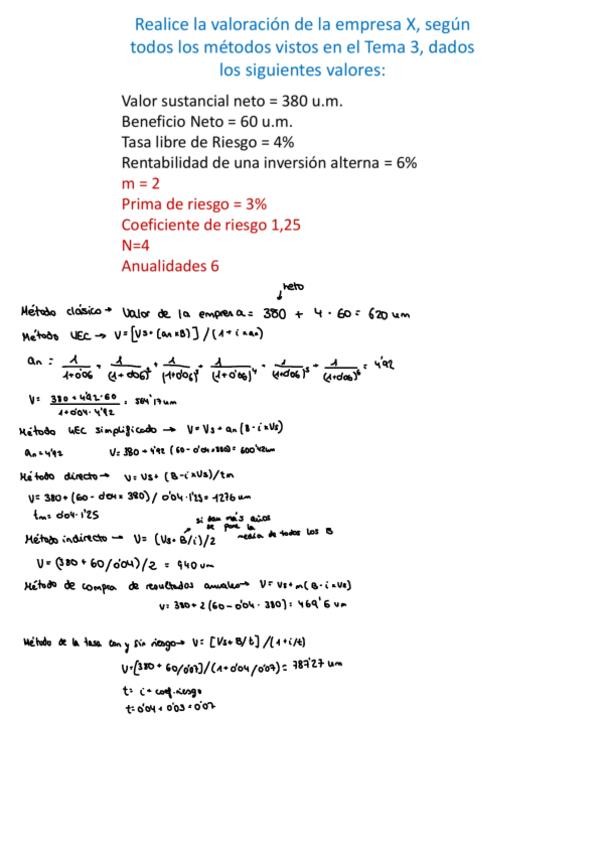 Realice la valoración de la empresa X, según
todos los métodos vistos en el Tema 3, dados
los siguientes valores:
Valor sustancial neto = 380 u.m.
Beneficio Neto = 60 u.m.
Tasa libre de Riesgo = 4%
Rentabilidad de una inversión alterna = 6%
m = 2
Prima de riesgo = 3%
Coeficiente de riesgo 1,25
N=4
Anualidades 6
neto
Método clásico → Valor de la empresa = 380 + 4 · 60 = 620 um
Método UEC → V = [Vs + (an x B)] / (1 + i x an)
an = 1/(1+0'06) + 1/(1+0'06)² + 1/(1+0'06)³ + 1/(1+0'06)⁴ + 1/(1+0'06)⁵ + 1/(1+0'06)⁶ = 4'92
V = (380 + 4'92 · 60)/(1+0'04 · 4'92) = 564'17um
Método UEC simplificado → V = Vs + an (B - i x Vs)
an = 4'92 V = 380 + 4'92 (60 - 0'04 x 380) = 600'42um
Método directo → V = Vs + (B - i x Vs)/tm
V = 380 + (60 - 0'04 x 380) / 0'04 · 1'25 = 1276 um
tm = 0'04 · 1'25
si dan más años
se pone la
media de todos los B
Método indirecto → V = (Vs + B/i)/2
V = (380 + 60/0'04)/2 = 940 um
Método de compra de resultados anuales → V = Vs + m (B - i x Vs)
V = 380 + 2 (60 - 0'04 · 380) = 469'6 um
Método de la tasa con y sin riesgo → V = [Vs + B/t] / (1 + i/t)
V = [380 + 60/0'07] / (1 + 0'04/0'07) = 787'27 um
t = i + coef. riesgo
t = 0'04 + 0'03 = 0'07